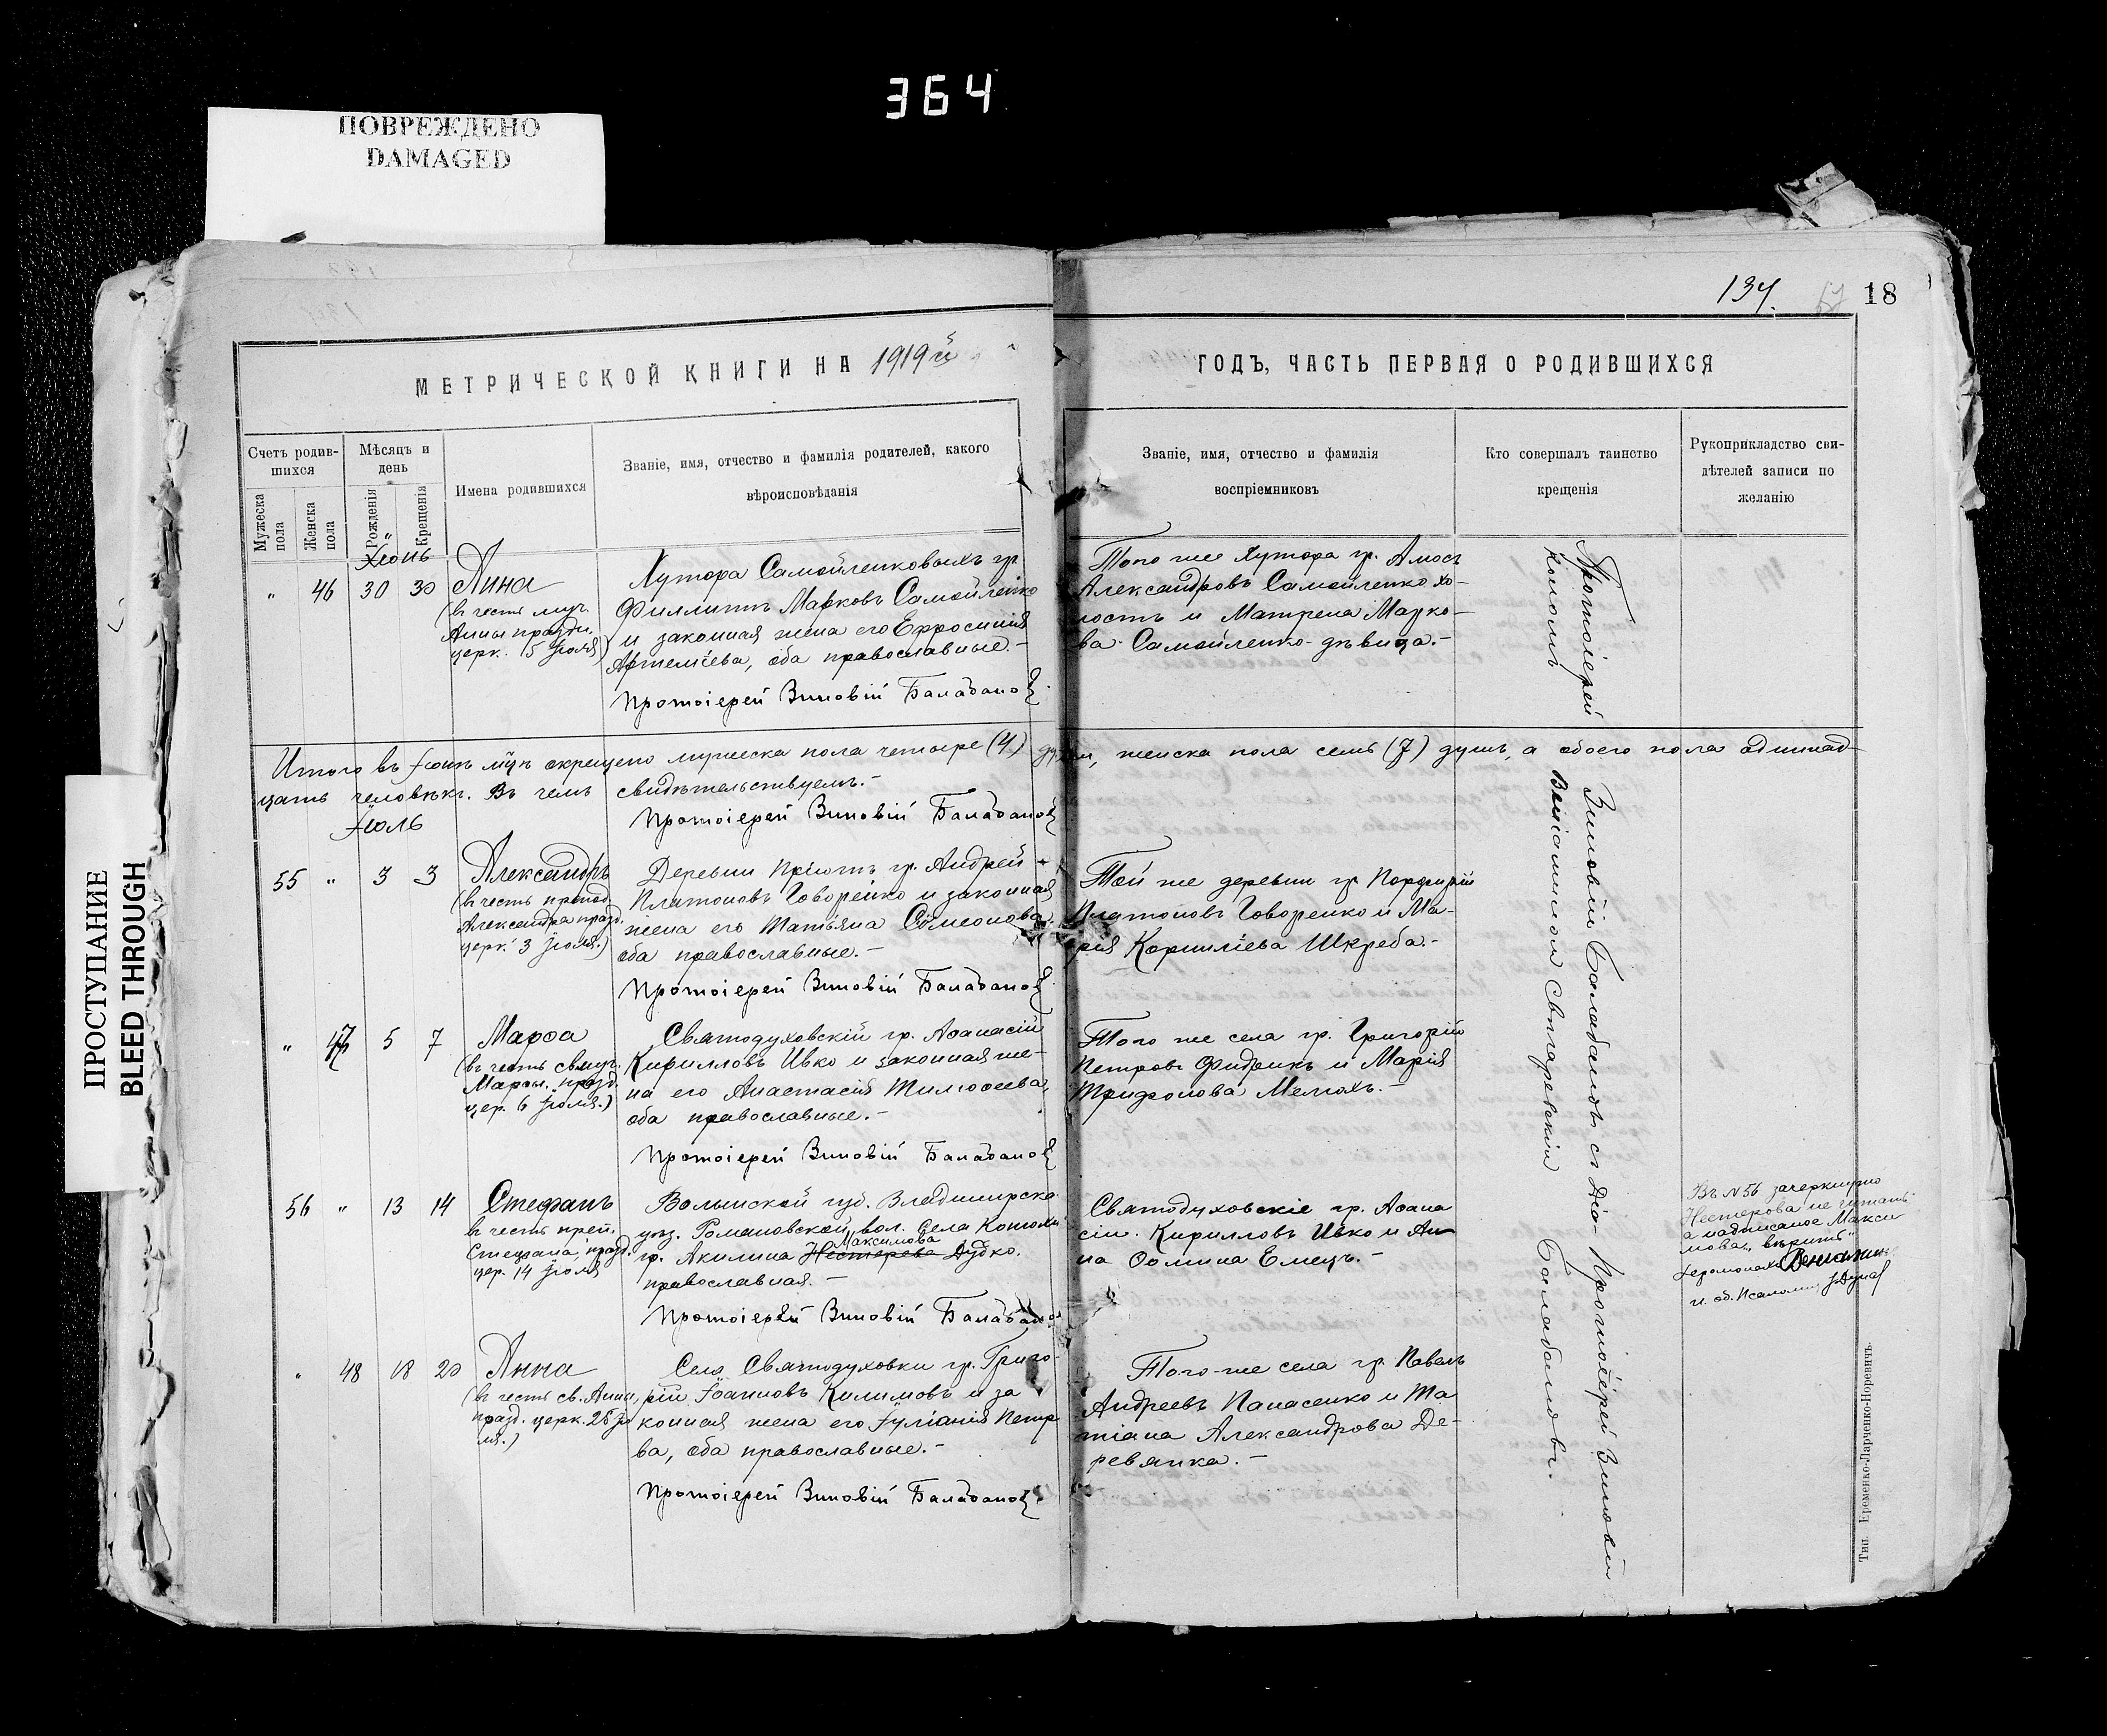 364
ПОВРЕЖДЕНО
DAMAGED
134.
18
МЕТРИЧЕСКОЙ КНИГИ НА 1919й
ГОДЪ, ЧАСТЬ ПЕРВАЯ О РОДИВШИХСЯ
Счетъ родив-
шихся
Мужеска
пола
Женска
пола
Мѣсяцъ и
день
Рожденія
Крещенія
Имена родившихся
Званіе, имя, отчество и фамилія родителей, какого
вѣроисповѣданія
Званіе, имя, отчество и фамилія
воспріемниковъ
Кто совершалъ таинство
крещенія
Рукоприкладство сви-
дѣтелей записи по
желанію
Іюнь
" 46 30 30
Анна
(въ честь муч.
Анны праздн.
церк. 5 Іюля)
Хутора Самойленковыхъ гр.
Филлипъ Марковъ Самойленко
и законная жена его Ефросинія
Артеміева, оба православные.-
Протоіерей Зиновій Балабановъ
Того же Хутора гр. Амосъ
Александровъ Самойленко хо-
лостъ и Матрена Марко-
ва Самойленко-дѣвица.-
Итого въ Іюнь мцъ окрещено мужеска пола четыре (4) душъ, женска пола семь (7) душъ, а обоего пола одиннад-
цать человѣкъ. Въ чемъ свидѣтельствуемъ.-
Протоіерей Зиновій Балабановъ
Іюль
55 " 3 3
Александръ
(въ честь препод.
Александра празд.
церк. 3 Іюля.)
Деревни Пріютъ гр. Андрей
Платоновъ Говорейко и законная
жена его Татьяна Сѵмеонова
оба православные.-
Протоіерей Зиновій Балабановъ
Той же деревни гр Порфирій
Платоновъ Говорейко и Ма-
рія Корниліева Шкреба.-
" 47 5 7
Марѳа
(въ честь св. муч.
Марѳы. празд.
цер. 6 Іюля.)
Святодуховскій гр. Аѳанасій
Кирилловъ Ивко и законная же-
на его Анастасія Тимоѳеева,
оба православные.-
Протоіерей Зиновій Балабановъ
Того же села гр. Григорій
Петровъ Фидрикъ и Марія
Трифонова Мелюхъ.-
56 " 13 14
Стефанъ
въ честь преп.
Стефана, празд.
цер. 14 Іюля
Волынской губ. Владимірска.
уѣз. Романовской вол. Села
гр. Акилина Нестерева Дудко.
Максимова
православная.-
Протоіерей Зиновій Балабановъ
Святодуховскіе гр. Аѳана
сій Кирилловъ Ивко и Ан
на Ѳомина Емецъ.-
Въ №56 зачеркнуто
Нестерова не читать
а надписаное Макси
мова „вѣрить"
Іеромонахъ Веніаминъ
и. об. Псаломщ.
" 48 18 20
Анна
(въ честь св. Анны,
празд. церк. 25 Ію
ля.)
Села Святодуховки гр. Григо-
рій Іоанновъ Килимовъ и за
конная жена его Іуліанія Петр
ва, оба православные.-
Протоіерей Зиновій Балабановъ
Того-же села гр. Павелъ
Андреевъ Панасенко и Та
тіана Александрова Де-
ревянка.-
Протоіерей Зиновій Балабановъ съ діа- Протоіерей Зиновій
кономъ Веніаминомъ Балабановъ.
ПРОСТУПАНИЕ
BLEED THROUGH
Тип. Еременко-Ларченко-Норевичъ.